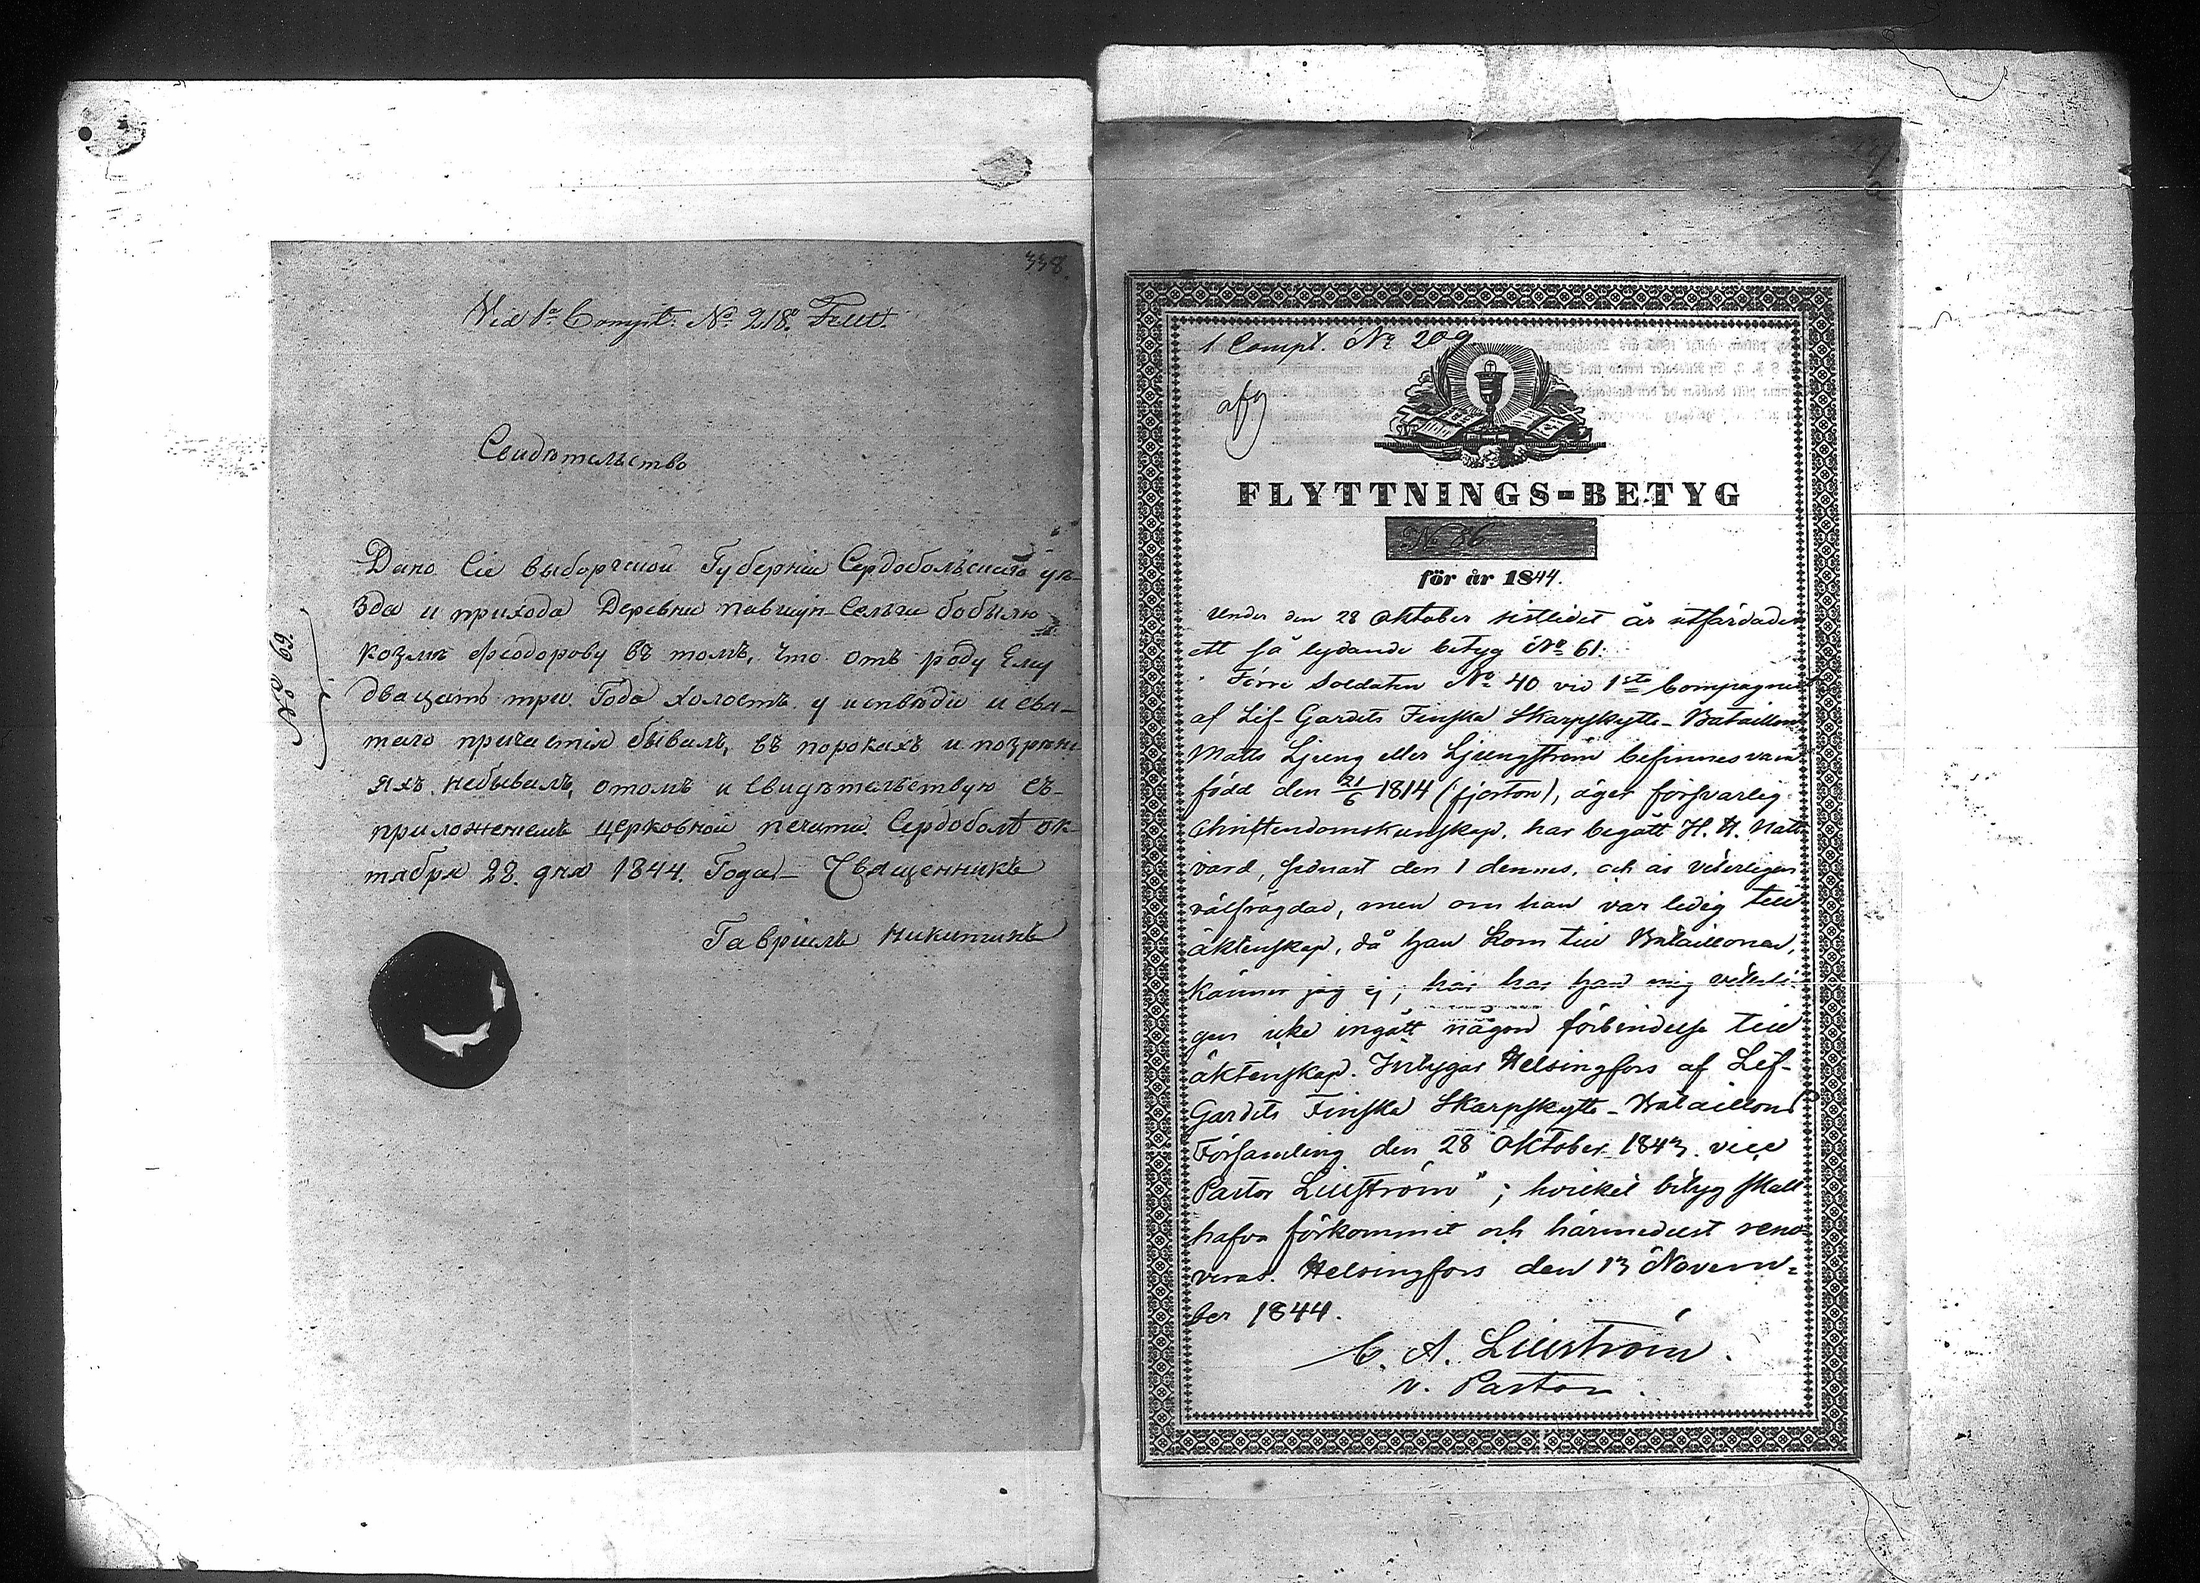 338.
Vid 1a Compt. No 218.
Свидѣтельство
No 69.
Дано Сіе выборгской Губерніи Сердобольскаго уѣ-
зда и прихода Деревни бобылю
козмѣ феодорову въ томъ, что отъ роду Ему
двацать три Года холостъ у исповѣди и свя-
таго причастія бывалъ, въ порокахъ и позрѣні
яхъ небывалъ, отомъ и Свидѣтельствую съ
приложеніемъ церковной печати Сердоболь ок-
тября 28. дня 1844. Года – Священникъ
Гавріилъ Никитинъ
1 Compt. No 209
afg
FLYTTNINGS-BETYG
No 86
för år 1844.
Under den 28 Oktober sistledet år utfärdades
ett så lydande betyg No 61:
Förre Soldaten No 40 vid 1sta Compagniet
af Lif-Gardets Finska Skarpskytte-Bataillon
Matts Ljung eller Ljungström befinnes vara
född den 21/6 1814 (fjorton), äger försvarlig
Christendomskunskap, har begått H. H. Natt-
vard, sednast den 1 dennes, och är veterligen
välfrägdad, men om han var ledig till
äktenskap, då han kom till Bataillonen,
känner jag ej; här har han mig veterli-
gen icke ingått någon förbindelse till
äktenskap. Intygar Helsingfors af Lif-
Gardets Finska Skarpskytte-Bataillons
Församling den 28 Oktober 1843. vice
Pastor Lilljström"; hvilket betyg skall
hafva förkommit och härmedelst reno-
veras. Helsingfors den 13 Novem-
ber 1844.
C. A.
v. Pastor.